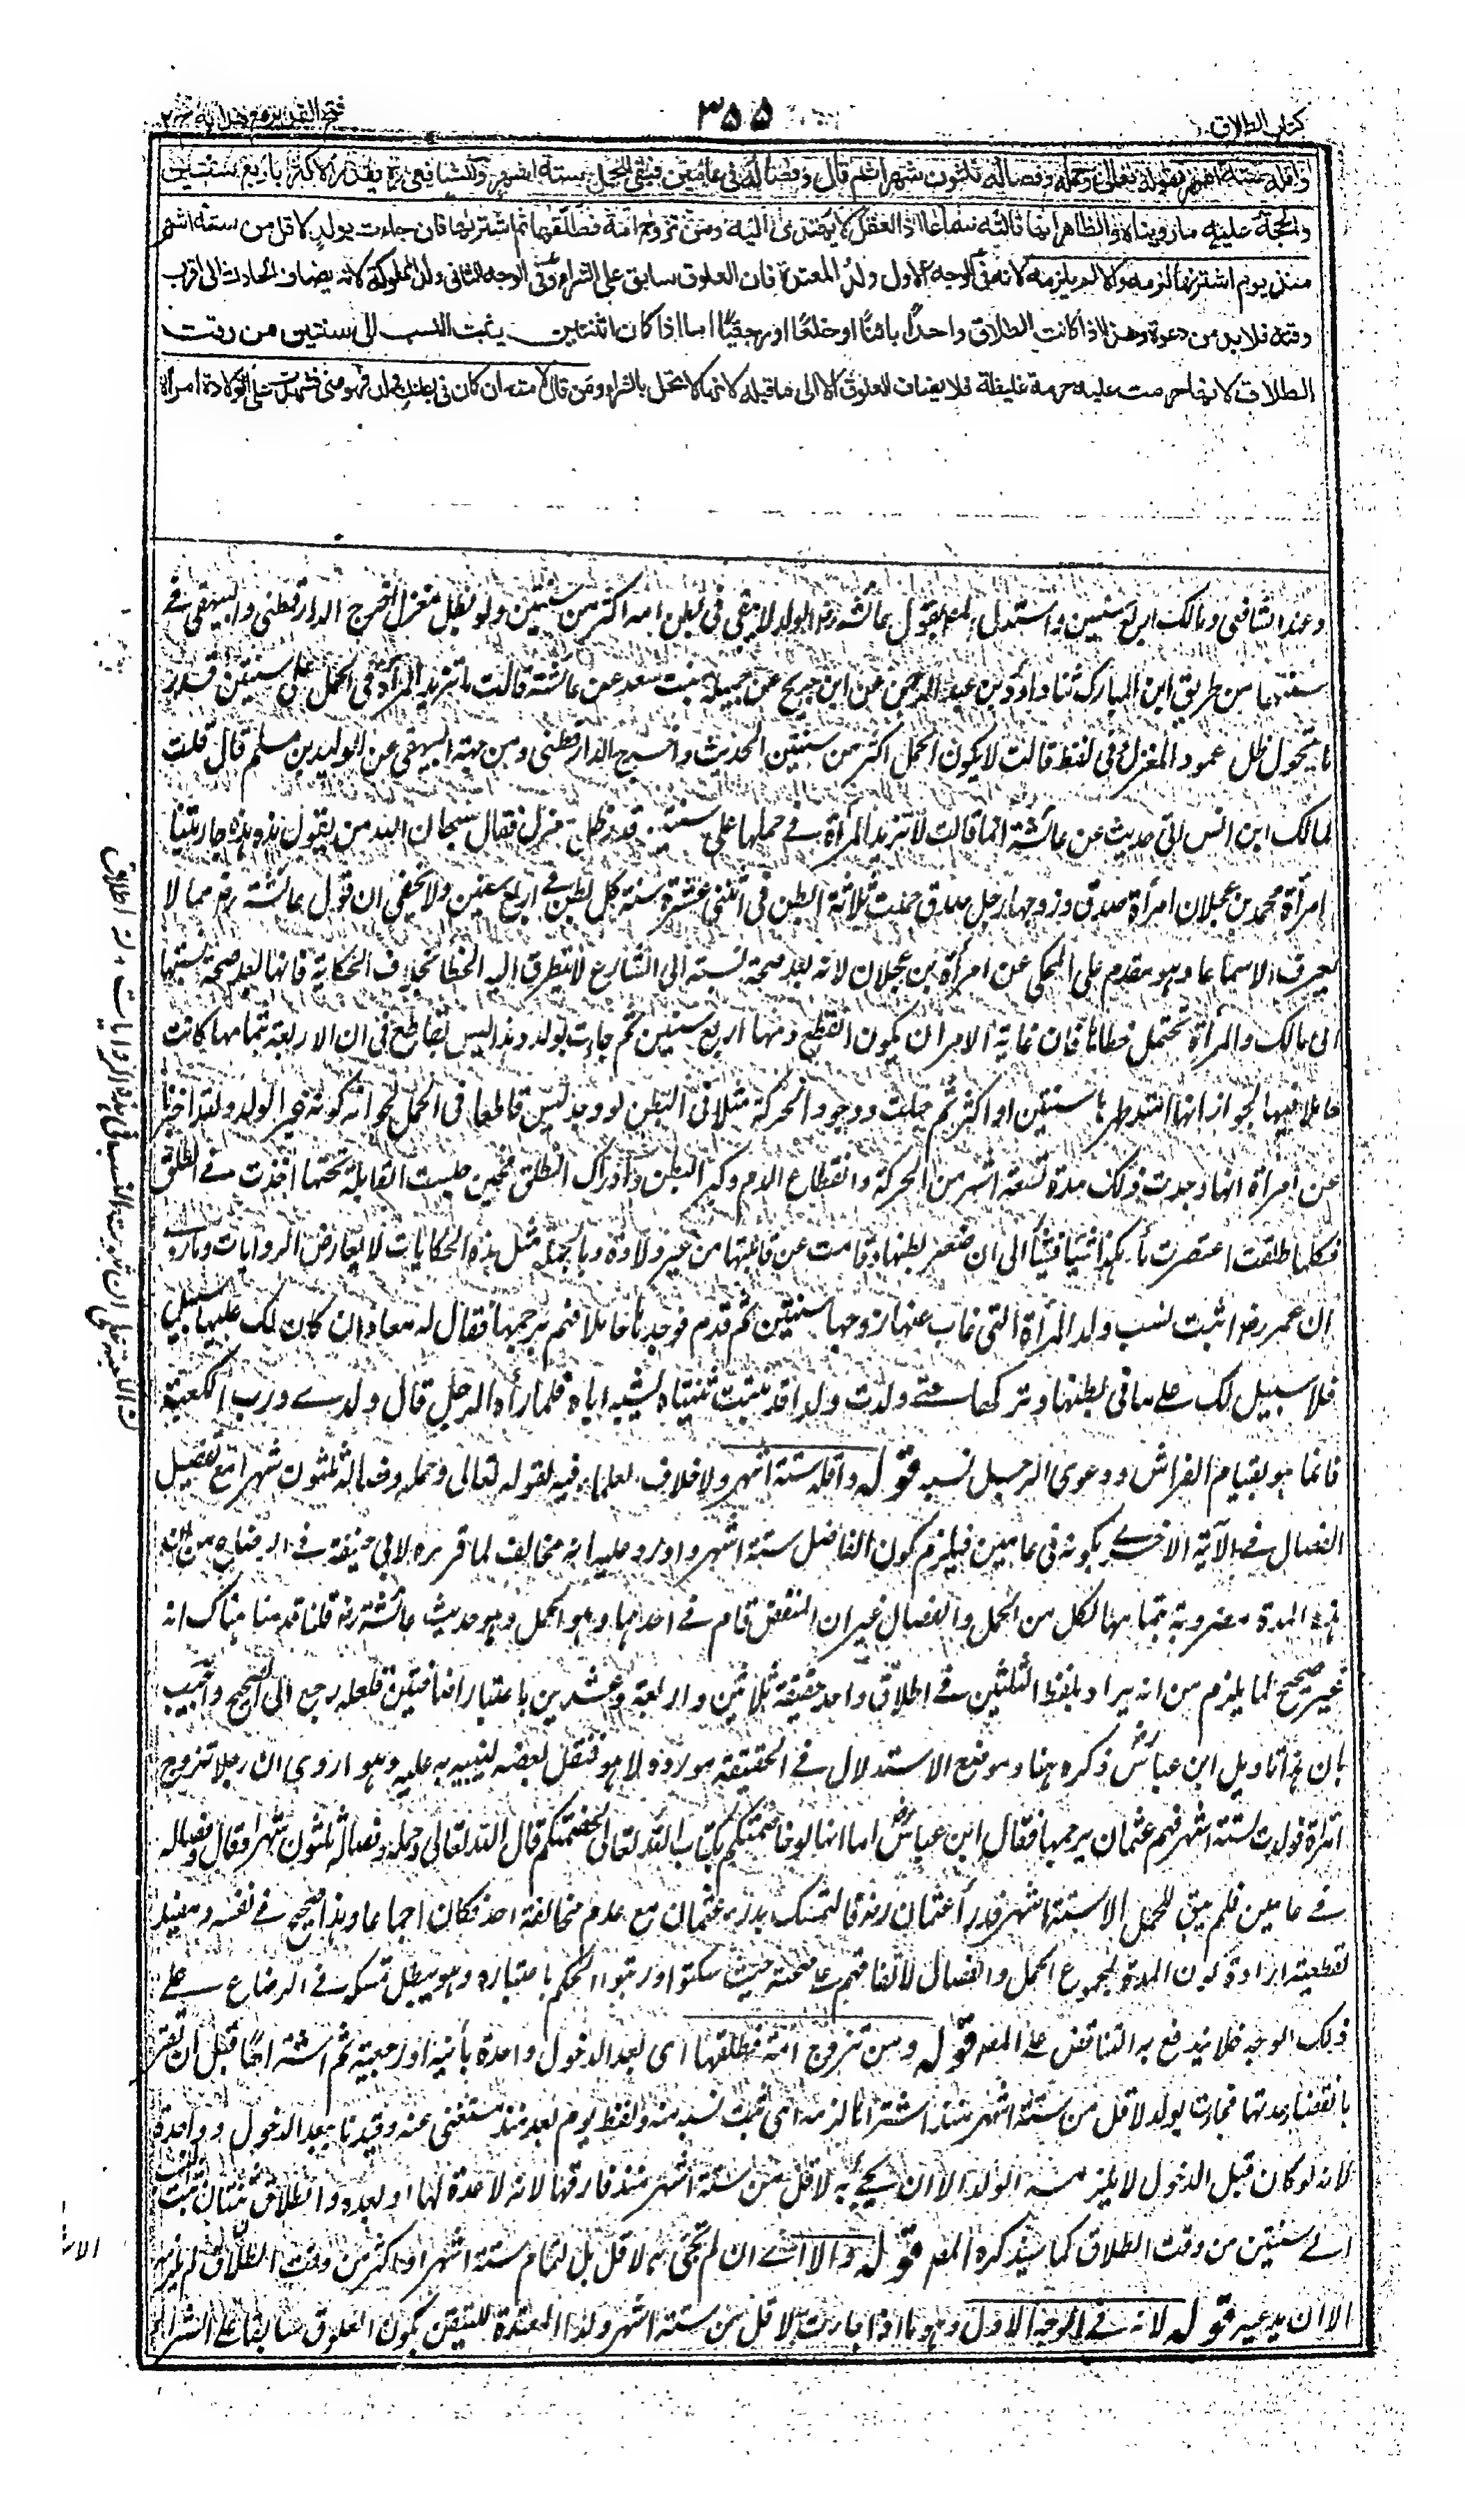 كتاب الطلاق
٣٥٥
فتح القدير مع هداية ج٢
واقله ستة اشهر لقوله تعالى وحمله وفصاله ثلثون شهرا ثم قال وفصاله في عامين فبقي للحمل ستة اشهر والشافعي ره يقدر الاكثر باربع سنتين
والحجة عليه ما رويناه والظاهر انها قالته سماعا اذ العقل لا يهتدى اليه ومن تزوج امة فطلقها ثم اشترىها فان جاءت بولد لاقل من ستة اشهر
منذ يوم اشترىها لزمه والا لم يلزمه لانه في الوجه الاول ولد المعتدة فان العلوق سابق على الشراء وفي الوجه الثاني ولد المملوكة لانه يضاف الحادث الى اقرب
وقته فلابد من دعوة وهذا اذا كانت الطلاق واحدا بائنا او خلعا او رجعيا اما اذا كان اثنتين يثبت النسب الى سنتين من وقت
الطلاق لانها حرمت عليه حرمة غليظة فلا يضاف العلوق الا الى ما قبله لانها لا تحل بالشراء ومن قال لامته ان كان في بطنك ولد فهو مني فشهدت على الولادة امرأة
وعند الشافعي ومالك اربع سنين واستدل المصـ بقول عائشة رضـ الولد لا يبقى في بطن امه اكثر من سنتين ولو بظل مغزل اخرج الدارقطني والبيهقي في
سننهما من طريق ابن المبارك ثنا داود بن عبد الرحمن عن ابن جريج عن جميلة بنت سعد عن عائشة قالت ما تزيد المرأة في الحمل على سنتين قدر
ما يتحول ظل عمود المغزل وفي لفظ قالت لا يكون الحمل اكثر من سنتين الحديث واخرج الدارقطني ومن جهته البيهقي عن الوليد بن مسلم قال قلت
لمالك ابن انس اني حديث عن عائشة انها قالت لا تزيد المرأة في حملها على سنتين قدر ظل مغزل فقال سبحان الله من يقول هذه هذه جارتنا
امرأة محمد بن عجلان امرأة صدق وزوجها رجل صدق حملت ثلاثة ابطن في اثنتي عشرة سنة كل بطن في اربع سنين ولا يخفى ان قول عائشة رضـ مما لا
يعرف الا سماعا وهو مقدم على المحكي عن امرأة ابن عجلان لانه بعد صحة نسبته الى الشارع لا يتطرق اليه الخطا بخلاف الحكاية فانها بعد صحة نسبتها
الى مالك والمرأة تحتمل خطاها فان غاية الامر ان يكون انقطع دمها اربع سنين ثم جاءت بولد وهذا ليس بقاطع في ان الاربعة بتمامها كانت
حاملا فيها لجواز انها امتد طهرها سنتين او اكثر ثم حبلت ووجود الحركة مثلا في البطن لو وجد ليس قاطعا في الحمل لجواز كونه غير الولد ولقد اخبرنا
عن امرأة انها وجدت ذلك مدة تسعة اشهر من الحركة وانقطاع الدم وكبر البطن وادراك الطلق فحين جلست القابلة تحتها اخذت في الطلق
فكلما طلقت اعتصرت ماء هكذا شيئا فشيئا الى ان ضمر بطنها وقامت عن قابلتها من غير ولادة وبالجملة مثل هذه الحكايات لا يعارض الروايات وما روى
ان عمر رضـ اثبت نسب ولد المرأة التي غاب عنها زوجها سنتين ثم قدم فوجدها حاملا فهم برجمها فقال له معاذ ان كان لك عليها سبيل
فلا سبيل لك على ما في بطنها وتركها حتى ولدت ولدا قد نبتت ثنيتاه يشبه اياه فلما رآه الرجل قال ولدي ورب الكعبة
فانما هو بقيام الفراش ودعوى الرجل نسبه قوله واقله ستة اشهر ولا خلاف للعلماء فيه لقوله تعالى وحمله وفصاله ثلثون شهرا مع تفصيل
الفصال في الآية الاخرى بكونه في عامين فيلزم كون الفاضل ستة اشهر واورد عليه انه مخالف لما قرره لابي حنيفة في الرضاع من ان
هذه المدة مضروبة بتمامها لكل من الحمل والفصال غير ان المنقص قام في احدهما وهو الحمل وهو حديث عائشة رضـ قلنا قدمنا هناك انه
غير صحيح لما يلزم من انه يراد بلفظ الثلثين في اطلاق واحد حقيقة ثلاثين واربعة وعشرين باعتبار اضافتين فلعله رجع الى الصحيح واجيب
بان هذا تاويل ابن عباس ذكره هنا وموضع الاستدلال في الحقيقة هو لا هو فنقل بعضه لينبه به عليه وهو ما روي ان رجلا تزوج
امرأة فولدت لستة اشهر فهم عثمان برجمها فقال ابن عباس اما انها لو خاصمتكم بكتاب الله تعالى لخصمتكم قال الله تعالى وحمله وفصاله ثلثون شهرا وقال وفصاله
في عامين فلم يبق للحمل الا ستة اشهر فدرأ عثمان رضـ فالتمسك بدرء عثمان مع عدم مخالفة احد فكان اجماعا وهذا صحيح في نفسه ومفيد
لقطعية ارادة كون المدة لمجموع الحمل والفصال لاتفاقهم على صحته حيث سكتوا ورتبوا الحكم باعتباره وهو يبطل تمسكه في الرضاع على
ذلك الوجه فلا يندفع به التناقض على المصـ قوله ومن تزوج امة فطلقها اى بعد الدخول واحدة بائنة او رجعية ثم اشتراها قبل ان تقر
بانقضاء عدتها فجاءت بولد لاقل من ستة اشهر منذ اشتراها لزمه اى ثبت نسبه منه ولفظ يوم بعد منذ مستغنى عنه وقيدنا ببعد الدخول وواحدة
لانه لو كان قبل الدخول لا يلزمه الولد الا ان يجئ به لاقل من ستة اشهر منذ فارقها لانه لا عدة لها او بعده والطلاق ثنتان ثبت النسب
الى سنتين من وقت الطلاق كما سيذكره المصـ قوله والا اى ان لم تجئ به لاقل بل لتمام ستة اشهر او اكثر من وقت الطلاق لم يلزمه
الا ان يدعيه قوله لانه في الوجه الاول وهو ما اذا جاءت به لاقل من ستة اشهر ولد المعتدة للتيقن بكون العلوق سابقا على الشراء